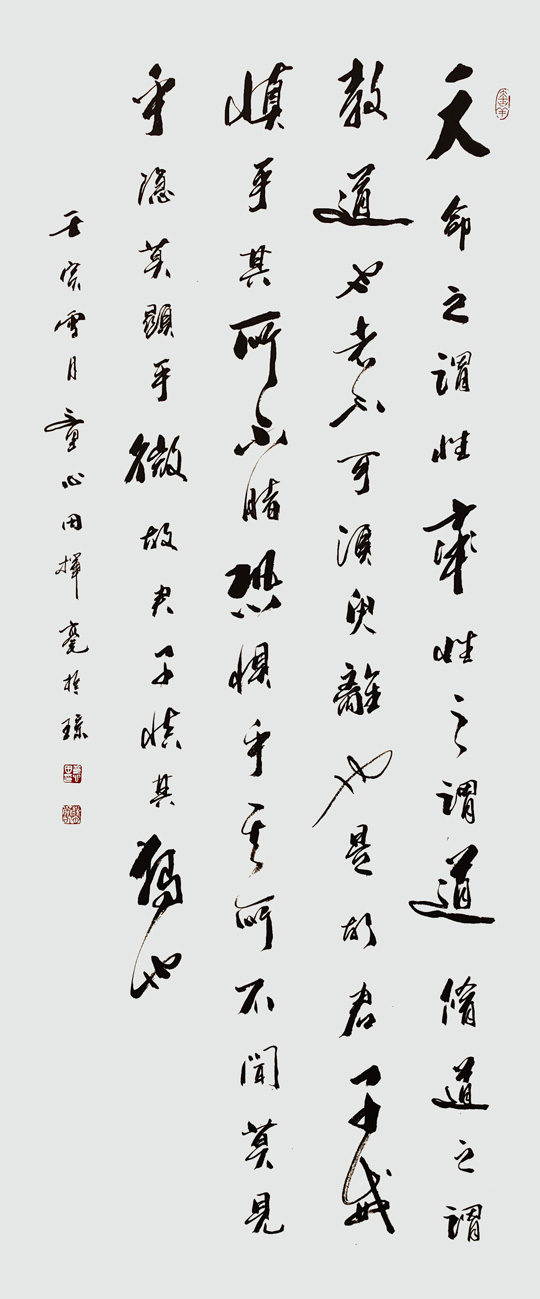 天命之謂性率性之謂道脩道之謂
教道也者不可須臾離也是故君子戒
慎乎其所不睹恐懼乎其所不聞莫見
乎隱莫顯乎微故君子慎其獨也
壬寅雪月童心田揮毫於瓊